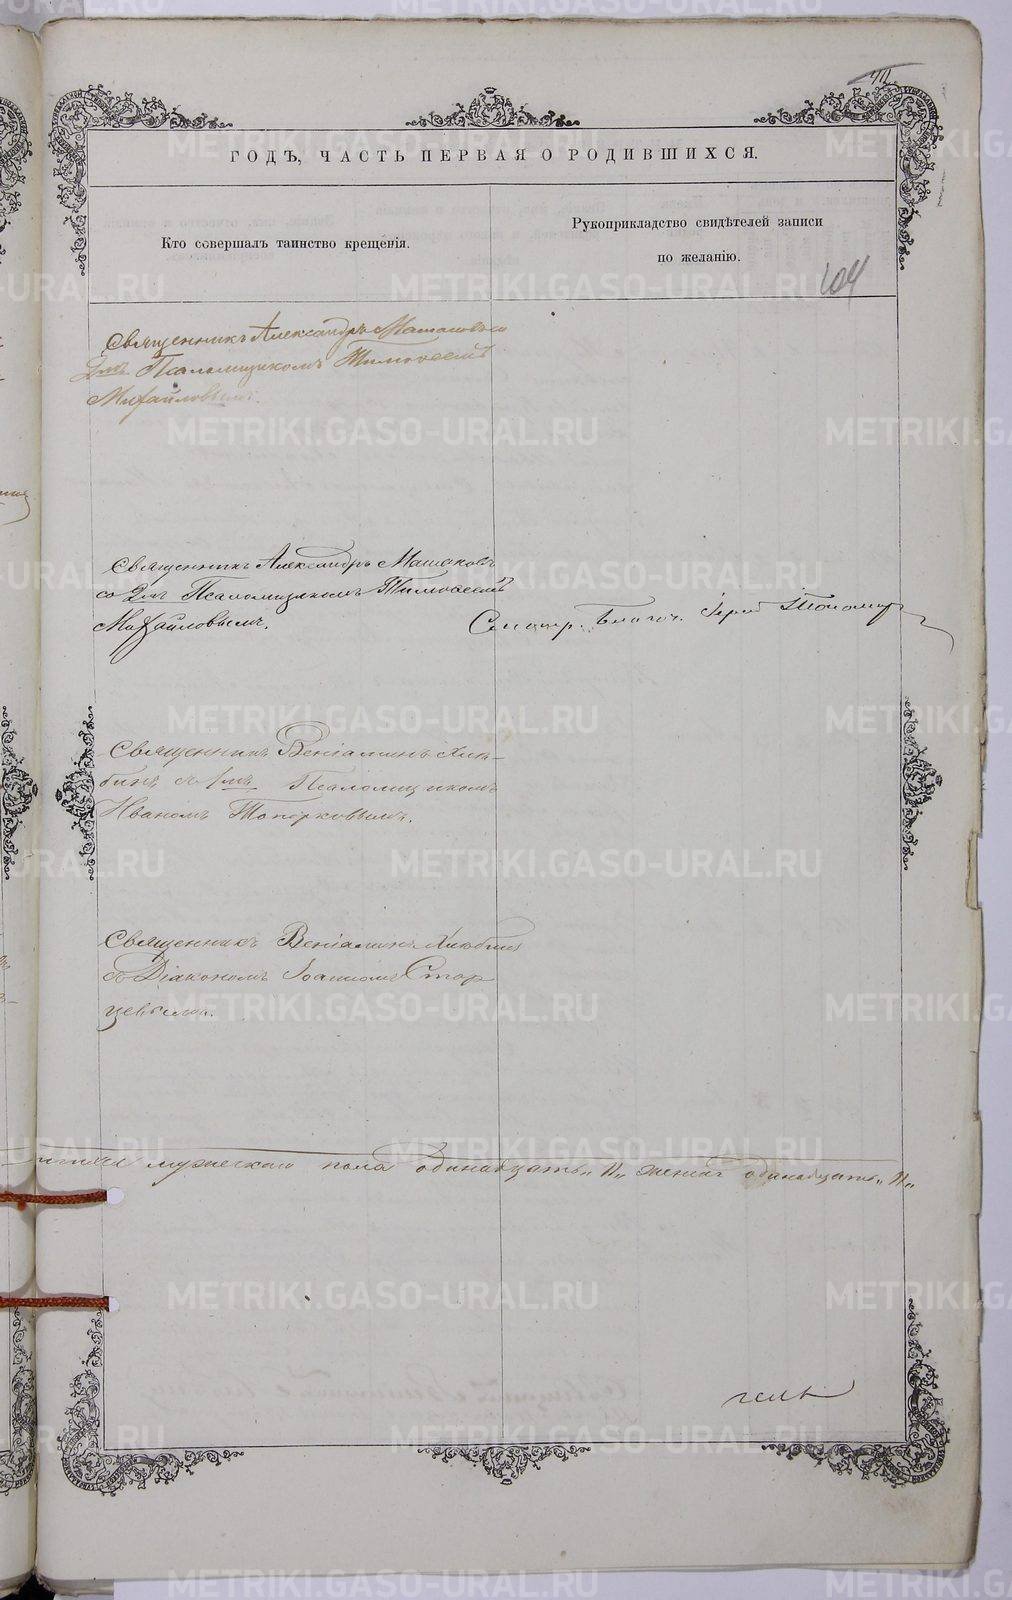 ГОДЪ, ЧАСТЬ ПЕРВАЯ О РОДИВШИХСЯ.
Кто совершалъ таинство крещенія.
Рукоприкладство свидѣтелей записи
по желанію.
104
Священникъ Александръ Машаковъ со
2мъ Псаломщикомъ Тимоѳеемъ
Михайловымъ.
Священникъ Александръ Машаковъ
со 2мъ Псаломщикомъ Тимоѳеемъ
Михайловымъ.
Смотр. Благоч. Іерей
Священникъ Веніаминъ Хлю-
бинъ съ 1мъ Псаломщикомъ
Иваномъ Топорковымъ.
Священникъ Веніаминъ Хлюбин
съ Діакономъ Іоанномъ Стар
цевымъ.
мужескаго пола одинадцать „11„ женска одинадцать „11„
METRIKI.GASO-URAL.RU